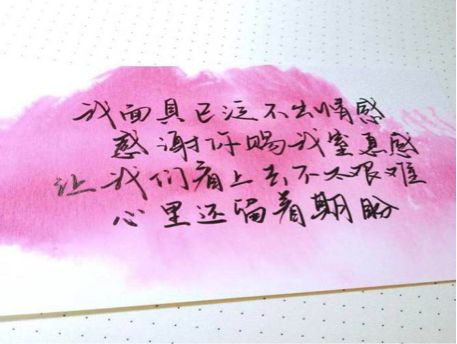 我面具已泛不出情感
感谢许赐我窒息感
让我们看上去不太艰难
心里还留着期盼